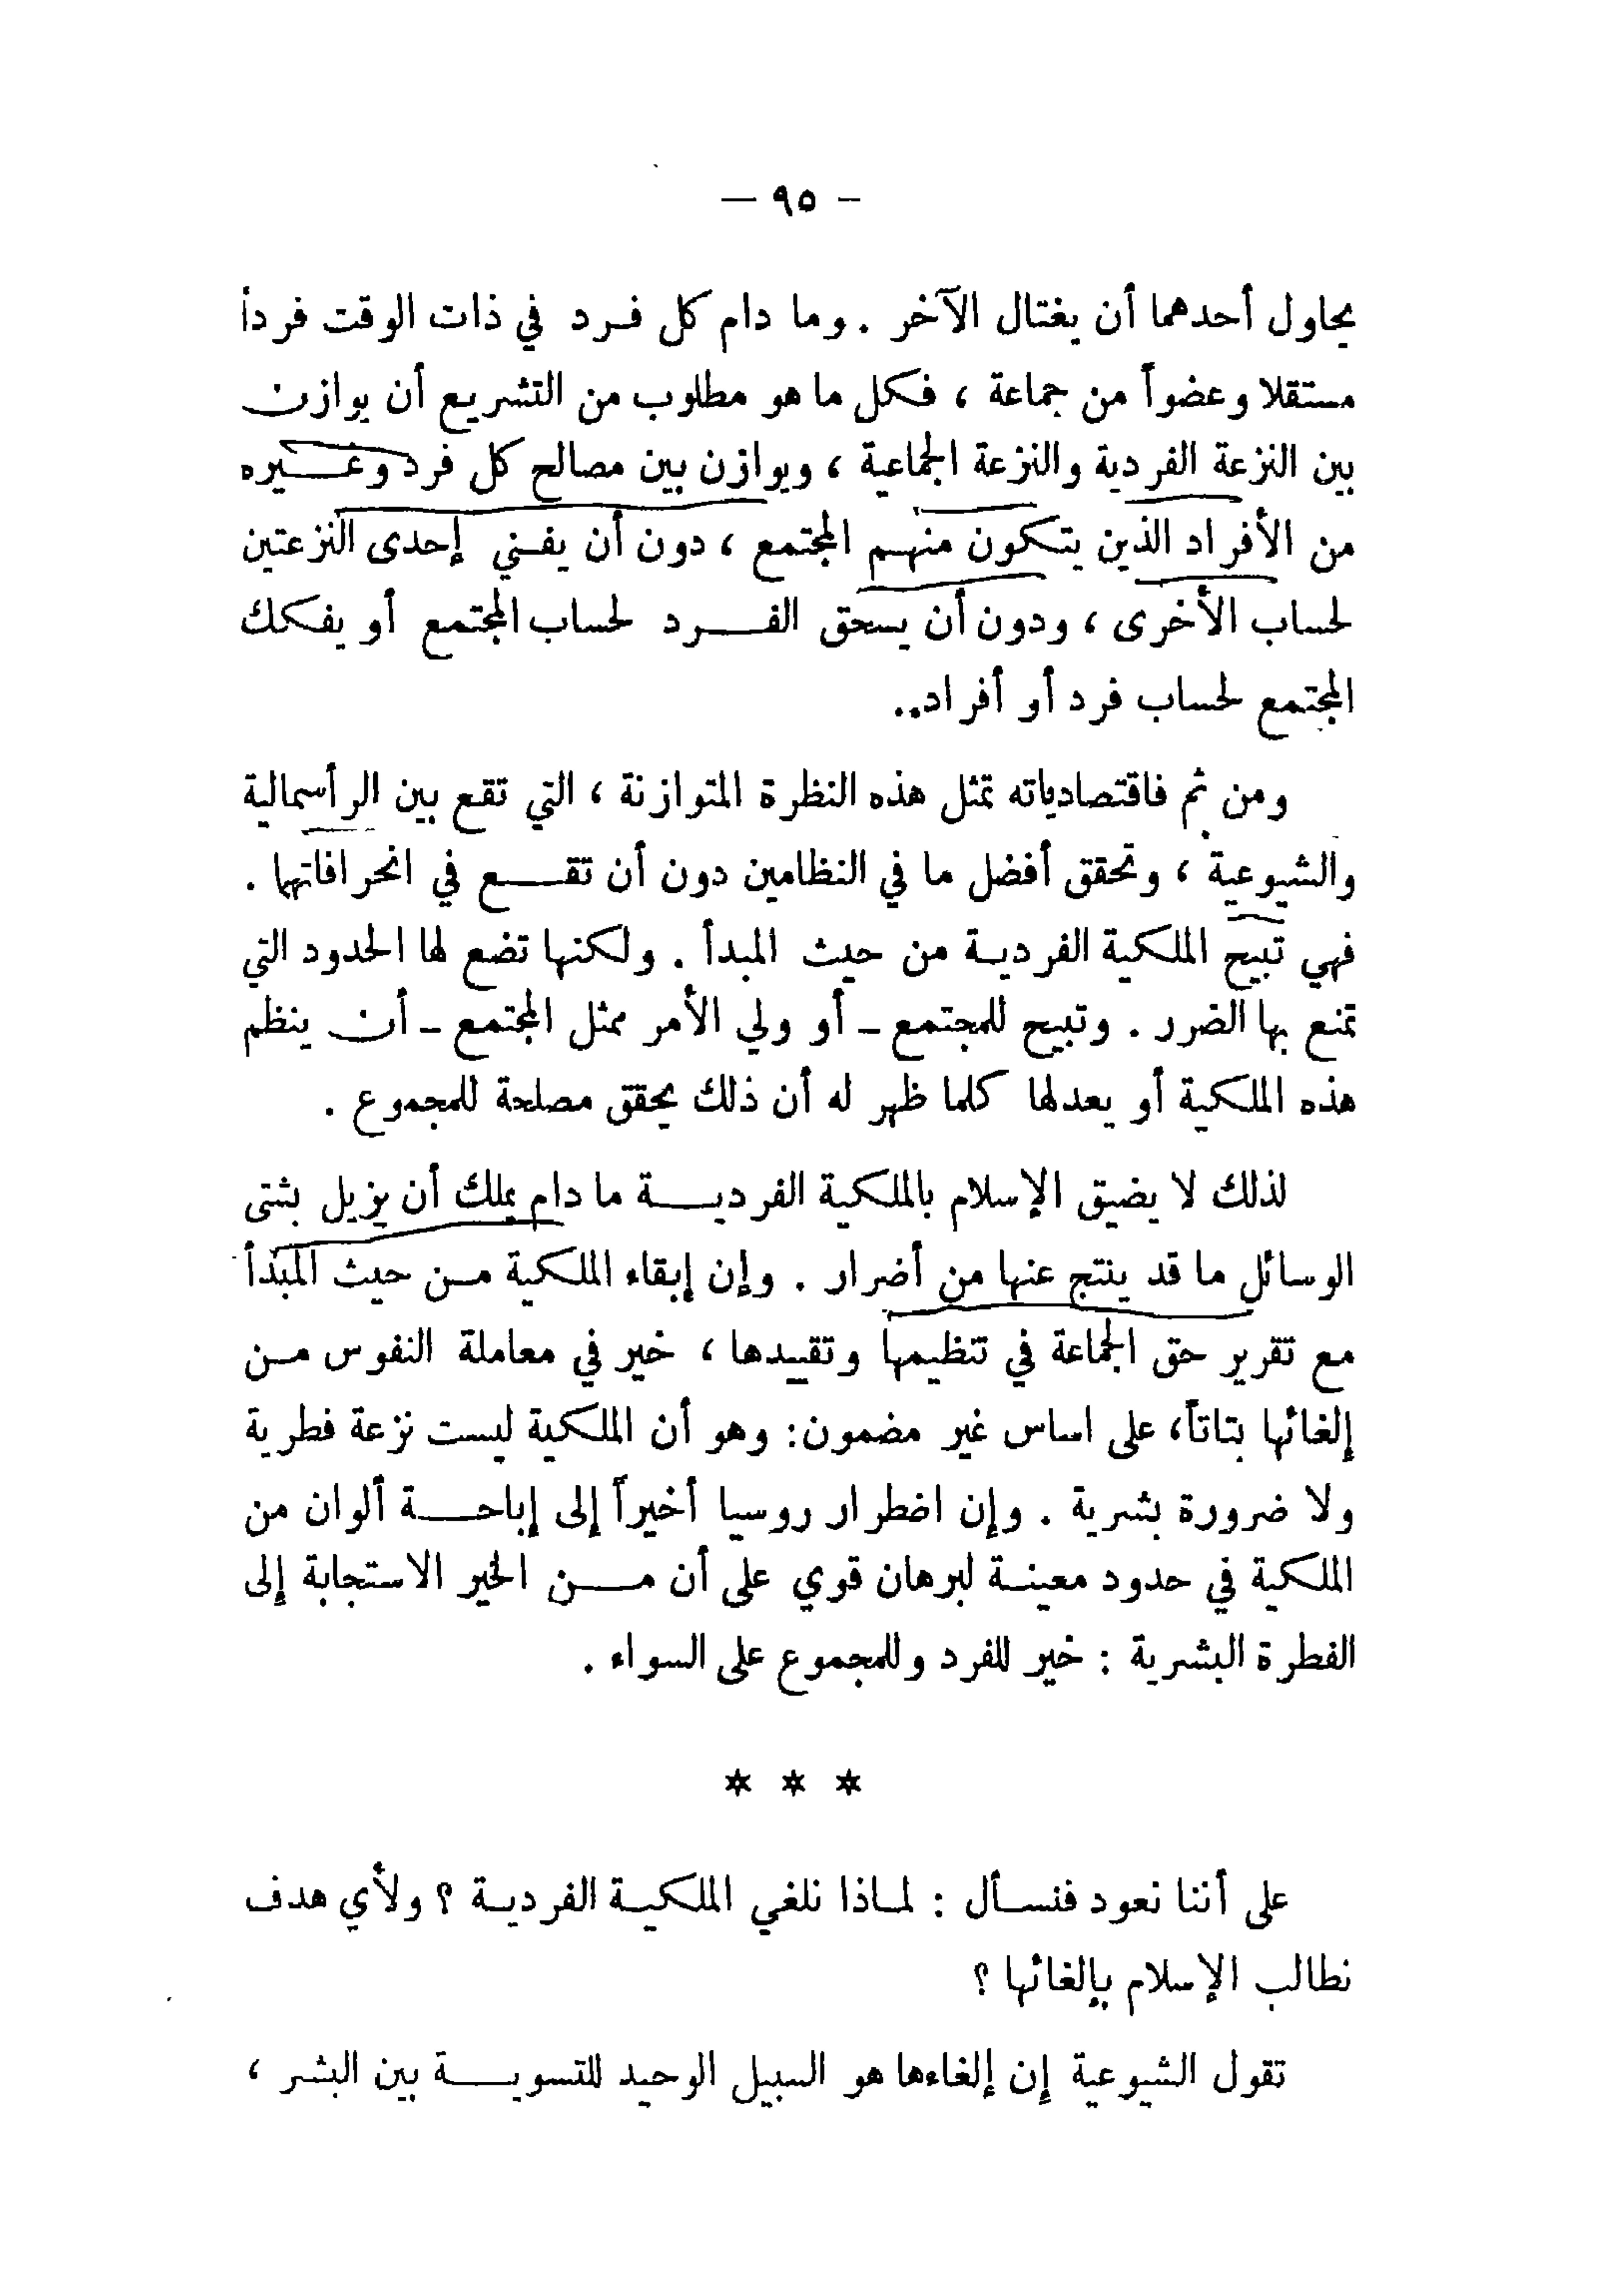 — ٩٥ —
يحاول أحدهما أن يغتال الآخر . وما دام كل فرد في ذات الوقت فرداً
مستقلا وعضواً من جماعة ، فكل ما هو مطلوب من التشريع أن يوازن
بين النزعة الفردية والنزعة الجماعية ، ويوازن بين مصالح كل فرد وغيره
من الأفراد الذين يتكون منهم المجتمع ، دون أن يفني إحدى النزعتين
لحساب الأخرى ، ودون أن يسحق الفرد لحساب المجتمع أو يفكك
المجتمع لحساب فرد أو أفراد..
ومن ثم فاقتصادياته تمثل هذه النظرة المتوازنة ، التي تقع بين الرأسمالية
والشيوعية ، وتحقق أفضل ما في النظامين دون أن تقع في انحرافاتهما .
فهي تبيح الملكية الفردية من حيث المبدأ . ولكنها تضع لها الحدود التي
تمنع بها الضرر . وتبيح للمجتمع – أو ولي الأمر ممثل المجتمع – أن ينظم
هذه الملكية أو يعدلها كلما ظهر له أن ذلك يحقق مصلحة للمجموع .
لذلك لا يضيق الإسلام بالملكية الفردية ما دام يملك أن يزيل بشتى
الوسائل ما قد ينتج عنها من أضرار . وإن إبقاء الملكية من حيث المبدأ
مع تقرير حق الجماعة في تنظيمها وتقييدها ، خير في معاملة النفوس من
إلغائها بتاتاً، على اساس غير مضمون: وهو أن الملكية ليست نزعة فطرية
ولا ضرورة بشرية . وإن اضطرار روسيا أخيراً إلى إباحة ألوان من
الملكية في حدود معينة لبرهان قوي على أن من الخير الاستجابة إلى
الفطرة البشرية : خير للفرد وللمجموع على السواء .
* * *
على أننا نعود فنسأل : لماذا نلغي الملكية الفردية ؟ ولأي هدف
نطالب الإسلام بإلغائها ؟
تقول الشيوعية إن إلغاءها هو السبيل الوحيد للتسوية بين البشر ،